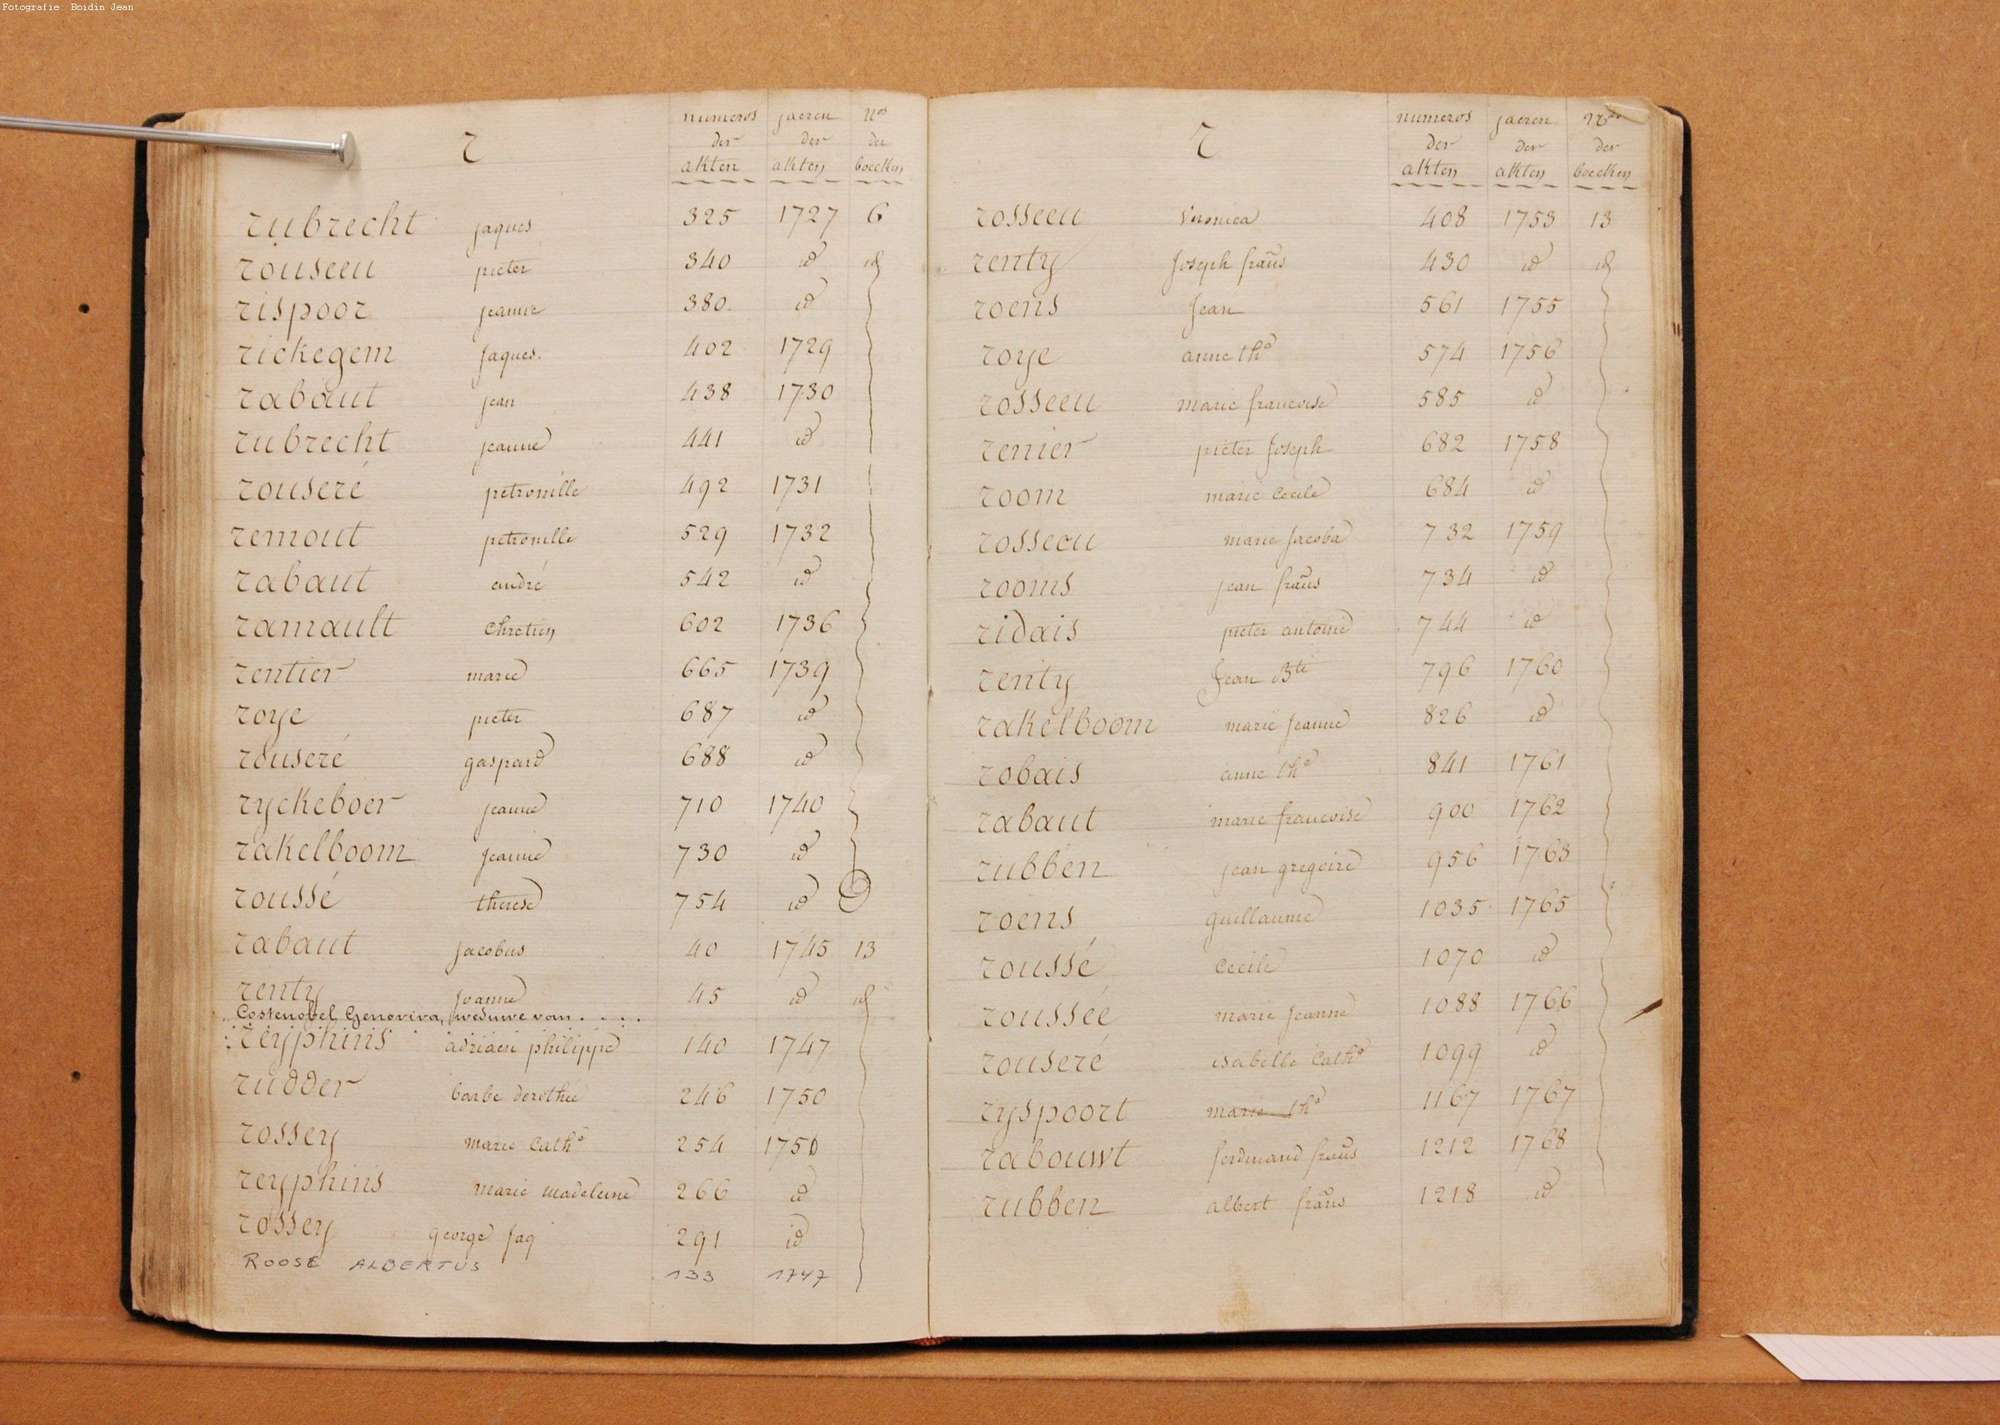 Fotografie Boidin Jean
r numeros der akten jaeren der akten Nos der boecken
rubrecht jaques 325 1727 6
rouseeu pieter 340 id id
rispoor jeanne 380. id
rickegem Jaques. 402 1729
rabaut jean 438 1730
rubrecht jeanne 441 id
rouseré petronille 492 1731
remout petronille 529 1732
rabaut andré 542 id
ramault Chretien 602 1736
rentier marie 665 1739
roye pieter 687 id
rouseré gaspard 688 id
ryckeboer jeanne 710 1740
rakelboom jeanne 730 id
roussé therese 754 id
rabaut jacobus 40 1745 13
renty joanne 45 id id
Costenobel Genoviva, weduwe van . . . .
reyphins adriaen philippe 140 1747
rudder barbe dorothée 246 1750
rossey marie Cathe 254 1750
reyphins marie madeleine 266 id
rossey george jaq 291 id
ROOSE ALBERTUS 133 1747
r numeros der akten jaeren der akten Nos der boecken
rosseeu Veronica 408 1753 13
renty Joseph fraus 430 id id
roens Jean 561 1755
roye anne the 574 1756
rosseeu marie francoise 585 id
renier pieter Joseph 682 1758
room marie Cecile 684 id
rosseeu marie Jacoba 732 1759
rooms jean fraus 734 id
ridais pieter antoine 744 id
renty Jean Bte 796 1760
rakelboom marie Jeanne 826 id
robais anne the 841 1761
rabaut marie francoise 900 1762
rubben jean gregoire 956 1763
roens guillaume 1035 1765
roussé Cecile 1070 id
roussée marie Jeanne 1088 1766
rouseré isabelle Cathe 1099 id
ryspoort marie the 1167 1767
rabouwt ferdinand fraus 1212 1768
rubben albert fraus 1218 id